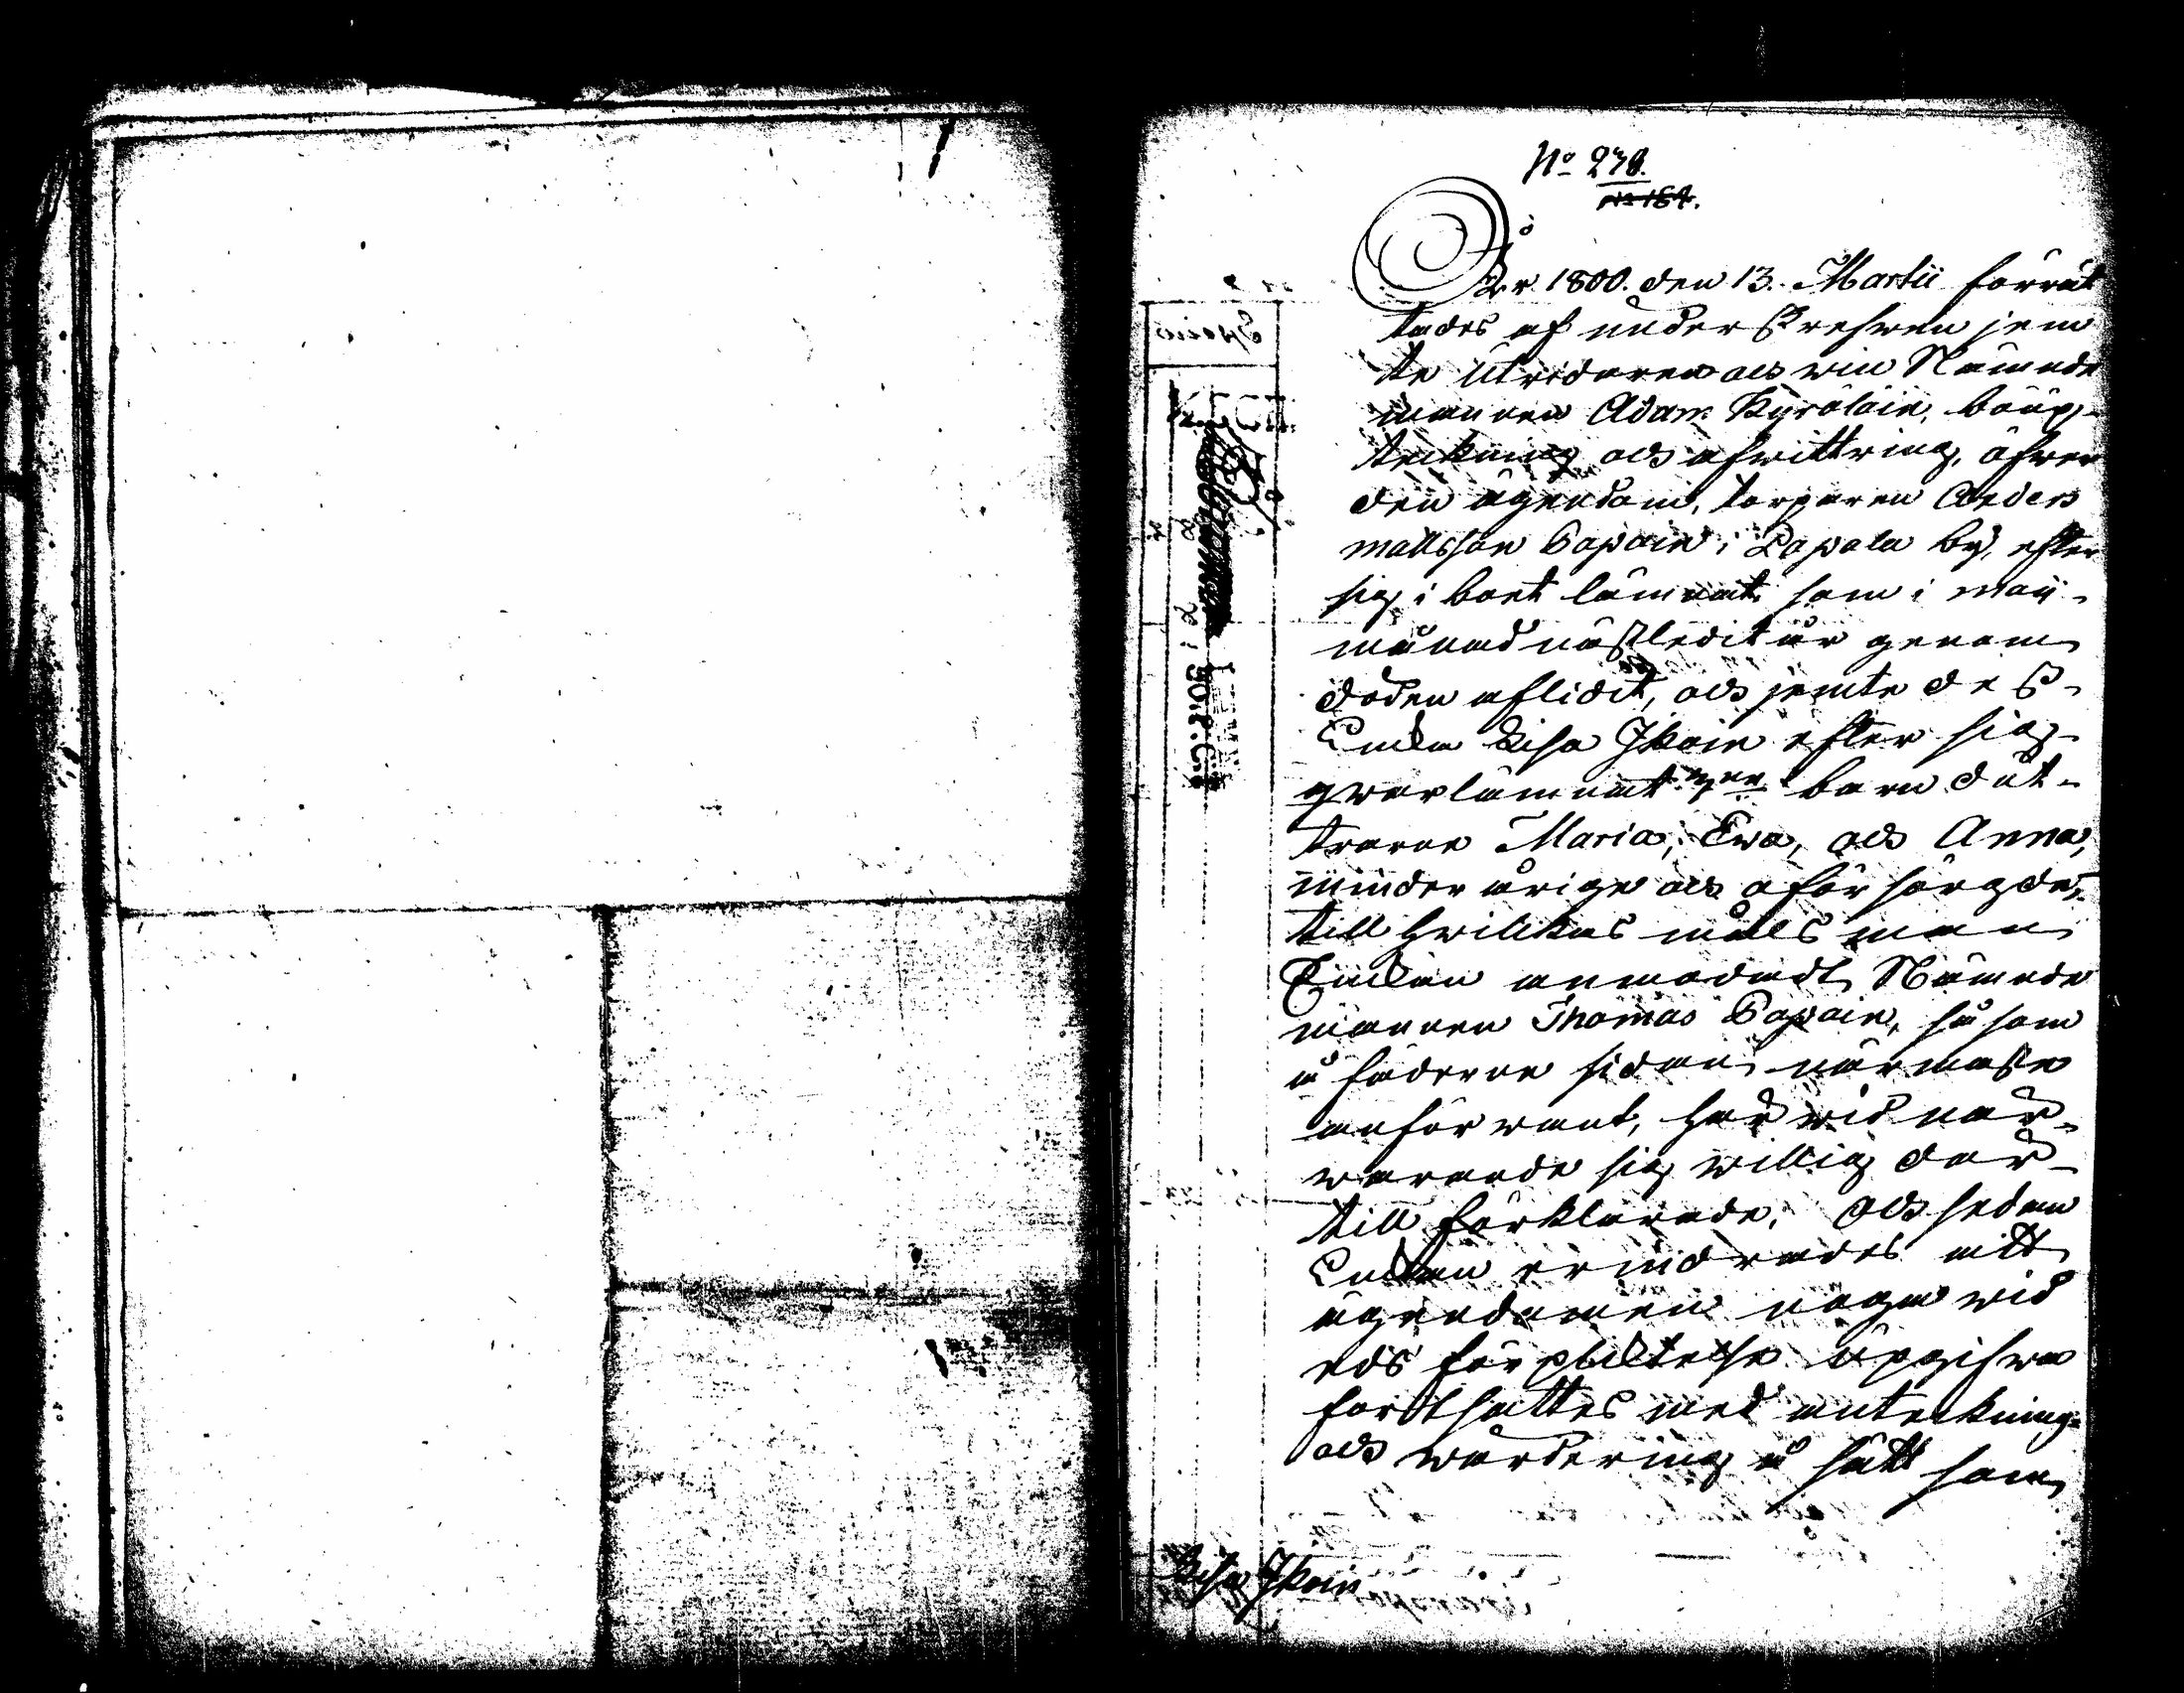 No 278.
No 184.
År 1800. den 13. Martii förrät
tades af under Skrefwen jem
te Utridaren och win Nämnde
mannen Adam Kyröläin, boüp-
teckning och afwittring, öfwer
den ägendom, torparen Anders
mattsson Papain i Papala by, efter
sig i boet lämnat som i maij
månad nästledit år genom
döden aflidit, och jemte deß
Enka Lisa Ikain efter sig
qwarlämnat 3ne barn döt-
trarne Maria, Ewa, och Anna,
minder årige och oförsörgde,
till hwilkas måls man
Enkan anmodadt Nämnde
mannen Thomas Papain, så som
å fäderne sidan närmaste
anförwant, hwar wid när-
warande sig willig där-
till förklarade. Och sedan
Enkan erindrades att
ägendomen noga wid
eds förplicktelse üpgifwa
fortsattes med anteckning-
och wärdering å sätt som
Lisa Ikain